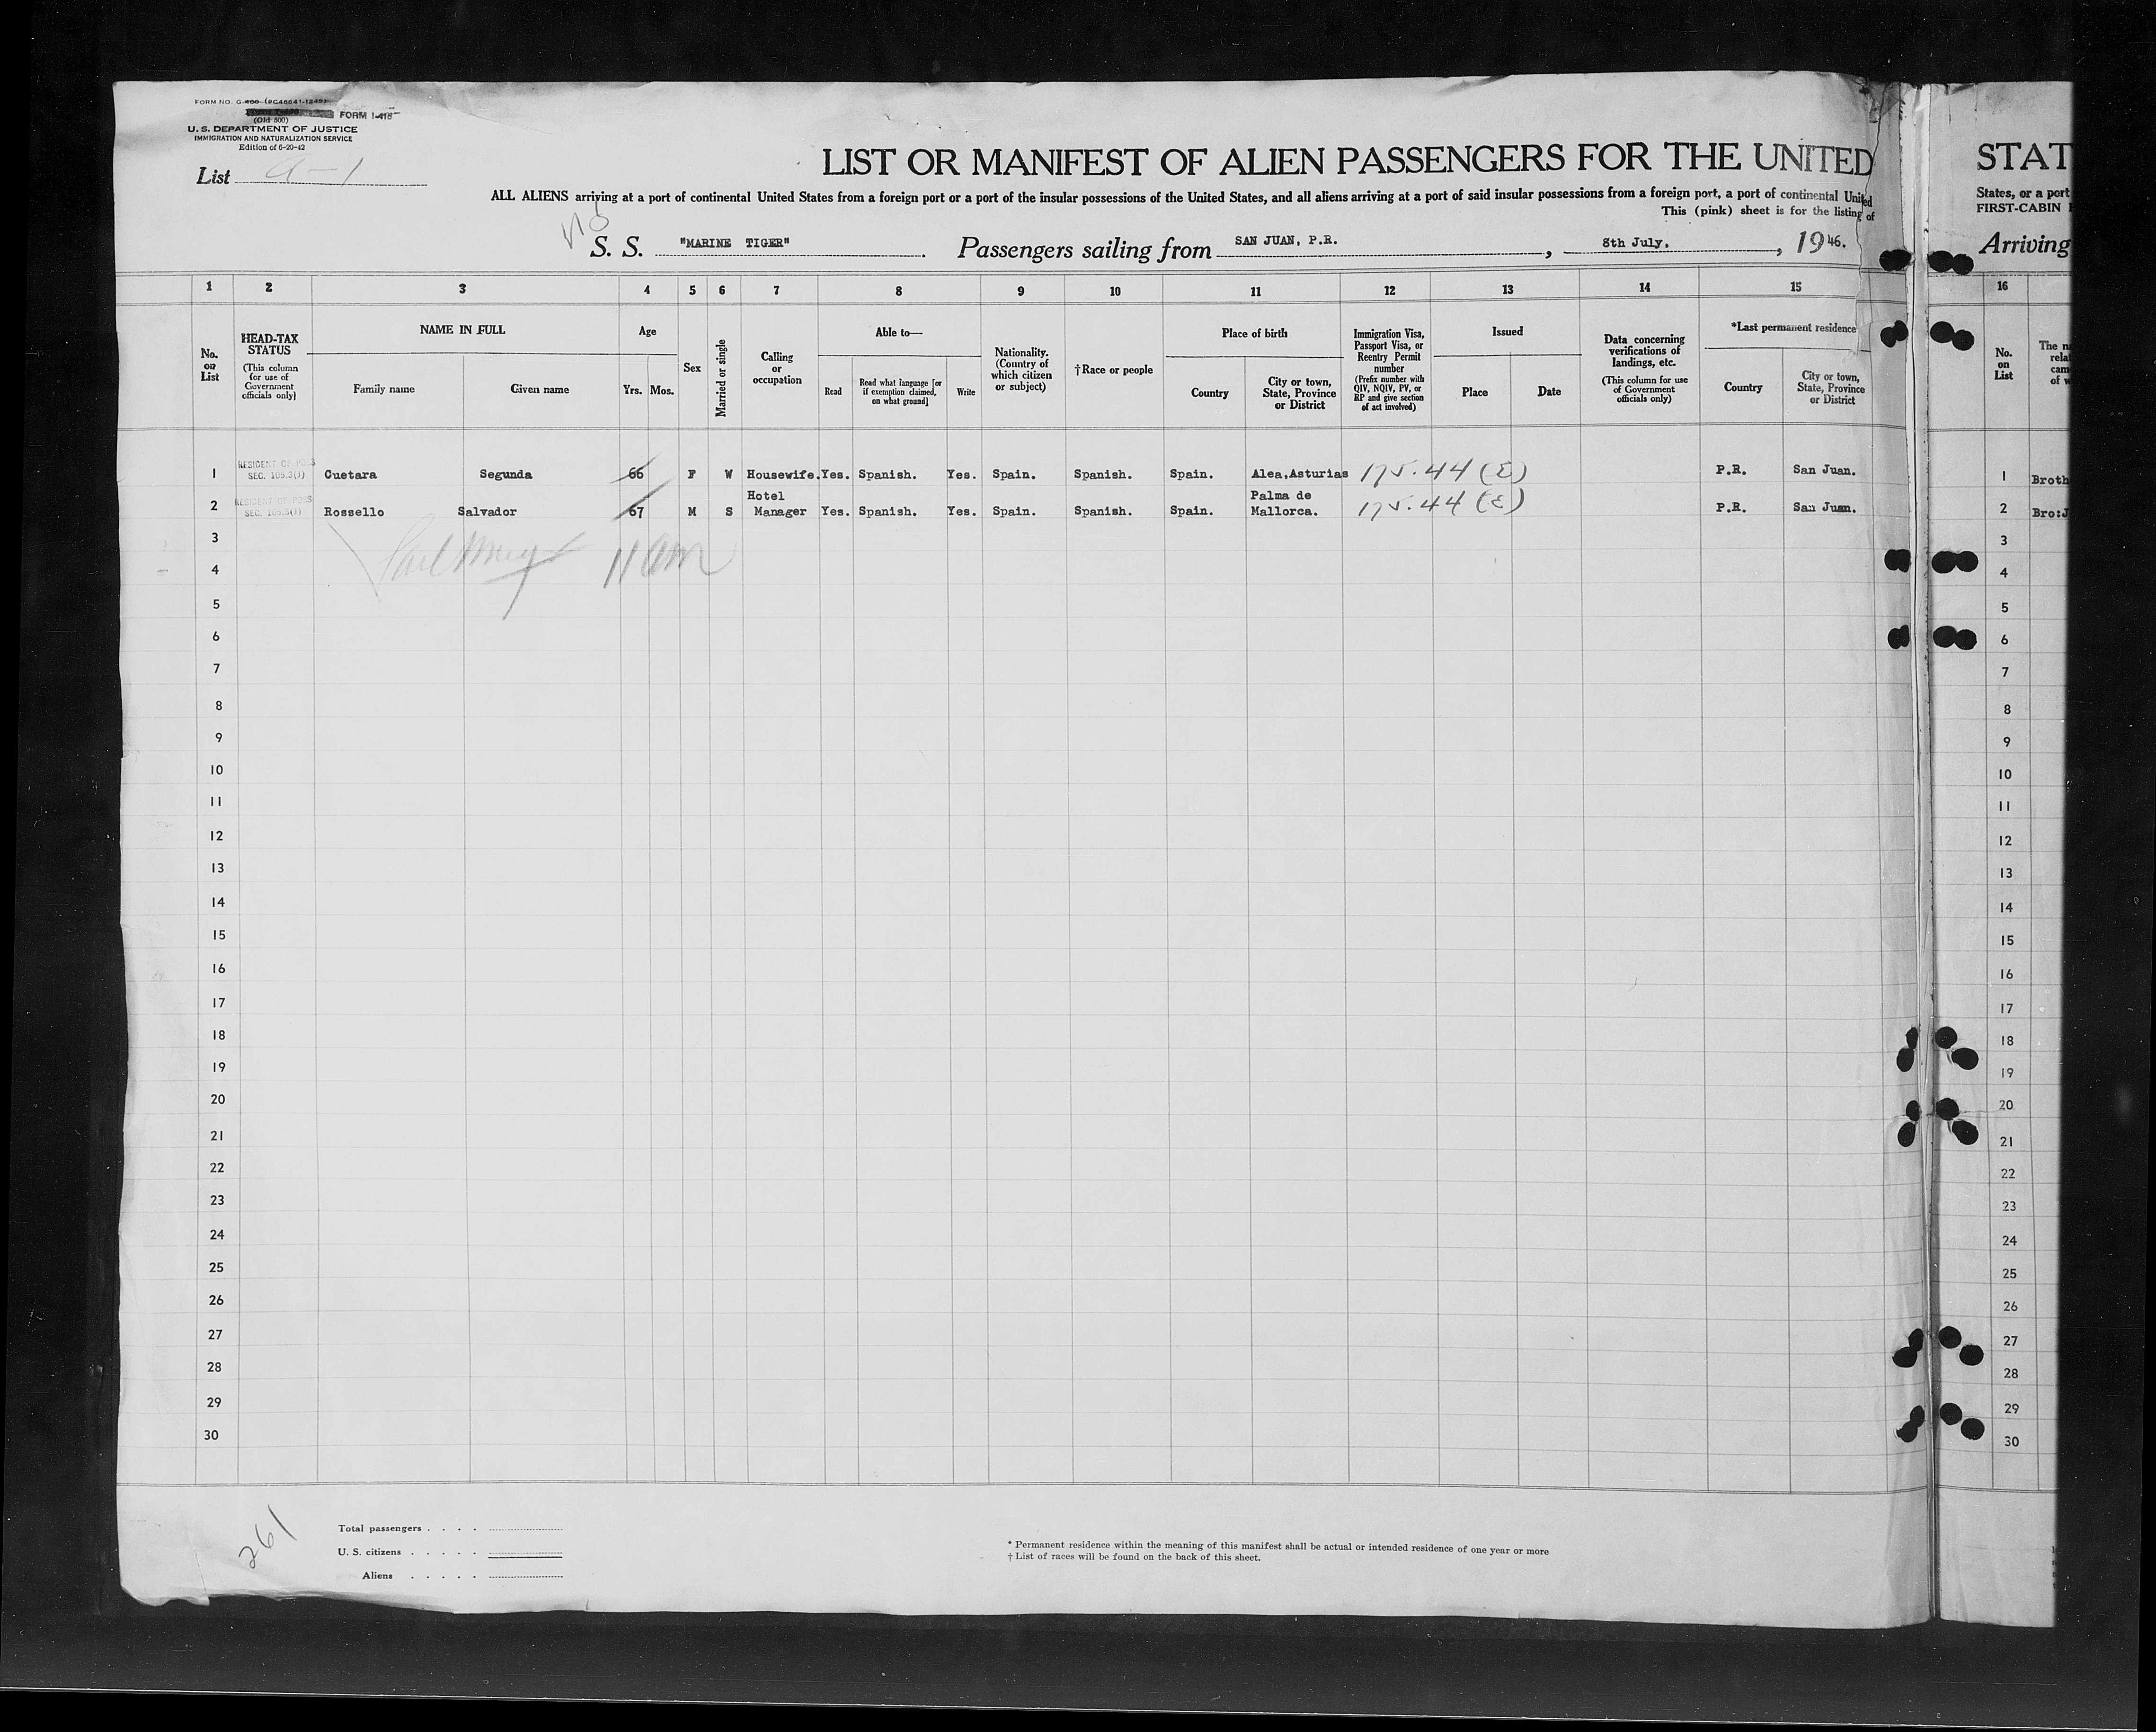 FORM NO. G-400 (PC46641-1245)
(Old 500) FORM I-415
U. S. DEPARTMENT OF JUSTICE
IMMIGRATION AND NATURALIZATION SERVICE
Edition of 6-20-42
List a-1
LIST OR MANIFEST OF ALIEN PASSENGERS FOR THE UNITED
ALL ALIENS arriving at a port of continental United States from a foreign port or a port of the insular possessions of the United States, and all aliens arriving at a port of said insular possessions from a foreign port, a port of continental United
This (pink) sheet is for the listing of
S. S. "MARINE TIGER". Passengers sailing from SAN JUAN, P.R., 8th July., 1946.
STAT
States, or a port
FIRST-CABIN
Arriving
1 2 3 4 5 6 7 8 9 10 11 12 13 14 15 16
No. on List
HEAD-TAX STATUS
(This column for use of Government officials only)
NAME IN FULL
Family name Given name
Age
Yrs. Mos.
Sex
Married or single
Calling or occupation
Able to—
Read
Read what language [or if exemption claimed, on what ground]
Write
Nationality. (Country of which citizen or subject)
†Race or people
Place of birth
Country
City or town, State, Province or District
Immigration Visa, Passport Visa, or Reentry Permit number
(Prefix number with QIV, NQIV, PV, or RP and give section of act involved)
Issued
Place Date
Data concerning verifications of landings, etc.
(This column for use of Government officials only)
*Last permanent residence
Country
City or town, State, Province or District
No. on List
RESIDENT OF POSS
SEC. 105.3(J)
1 Cuetara Segunda 66 F W Housewife. Yes. Spanish. Yes. Spain. Spanish. Spain. Alea,Asturias 175.44 (E) P.R. San Juan. 1 Broth
RESIDENT OF POSS
SEC. 105.3(J)
2 Rossello Salvador 67 M S Hotel Manager Yes. Spanish. Yes. Spain. Spanish. Spain. Palma de Mallorca. 175.44 (E) P.R. San Juan. 2 Bro:J
3 3
11 am
4 4
5 5
6 6
7 7
8 8
9 9
10 10
11 11
12 12
13 13
14 14
15 15
16 16
17 17
18 18
19 19
20 20
21 21
22 22
23 23
24 24
25 25
26 26
27 27
28 28
29 29
30 30
261
Total passengers . . . .
U. S. citizens . . . . .
Aliens . . . . .
* Permanent residence within the meaning of this manifest shall be actual or intended residence of one year or more
† List of races will be found on the back of this sheet.